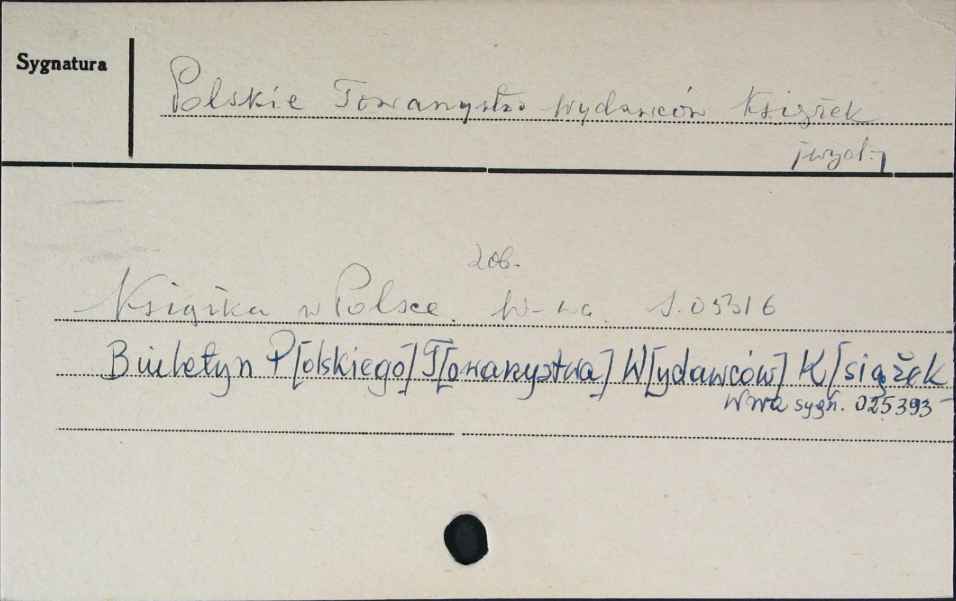 Sygnatura
Polskie Towarzystwo Wydawców Książek
[wyd.]
zob.
Książka w Polsce. W-wa. S. 05316
Biuletyn P[olskiego] T[owarzystwa] W[ydawców] K[siążek
W-wa sygn. 025393